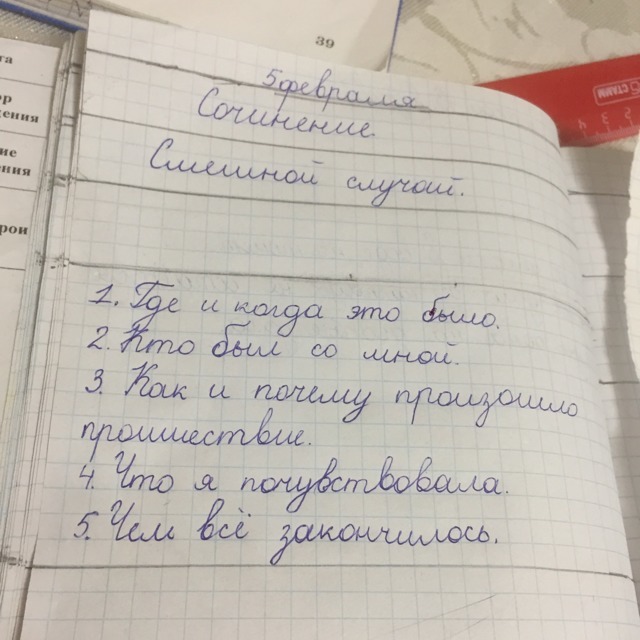 39
та
ор
жения
ие
ения
рои
СТАММ
2 3 4
5 февраля
Сочинение.
Смешной случай.
1. Где и когда это было.
2. Кто был со мной.
3. Как и почему произошло
проишествие.
4. Что я почувствовала.
5. Чем всё закончилось.